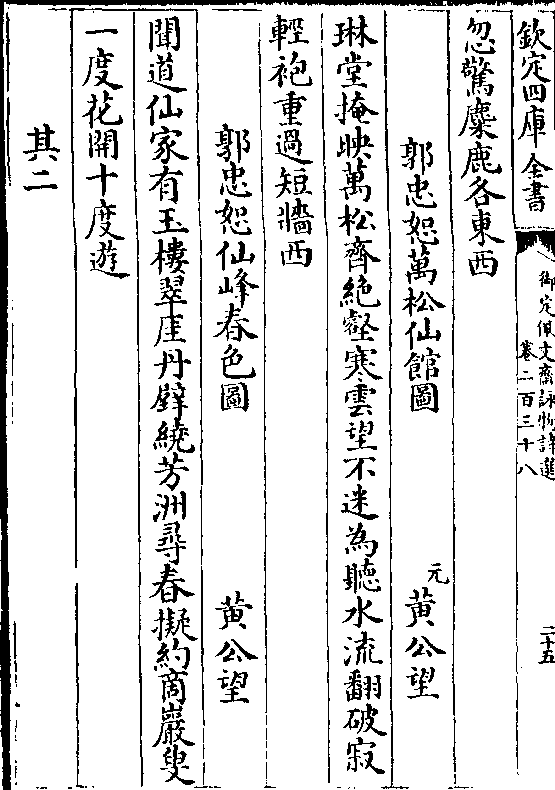 欽定四庫全書
御定佩文齋詠物詩選
卷二百三十八
二十五
忽驚麋鹿各東西
郭忠恕萬松仙館圖 元 黃公望
琳堂掩映萬松齊絶壑寒雲望不迷為聽水流翻破寂
輕袍重過短牆西
郭忠恕仙峰春色圖 黃公望
聞道仙家有玉樓翠厓丹壁繞芳洲尋春擬約商巖叟
一度花開十度遊
其二